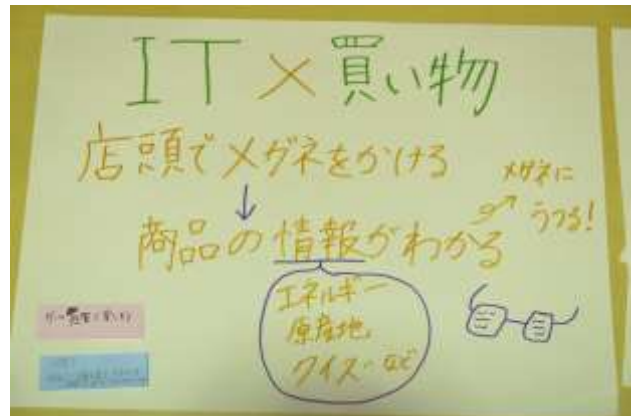 IT×買い物
店頭でメガネをかける
↓
商品の情報がわかる
メガネに
うつる!
エネルギー
原産地
クイズ…など